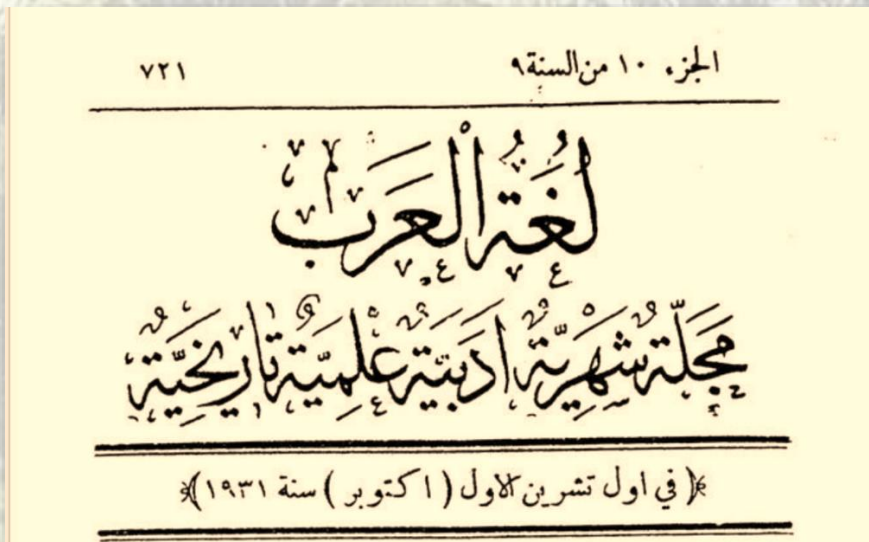 الجزء ١٠ من السنة ٩
٧٢١
لُغَةُ الْعَرَب
مَجَلَّة شَهْرِيَّة اَدَبِيَّة عِلْمِيَّة تَارِيخِيَّة
﴿ في اول تشرين الاول ( اكتوبر ) سنة ١٩٣١ ﴾